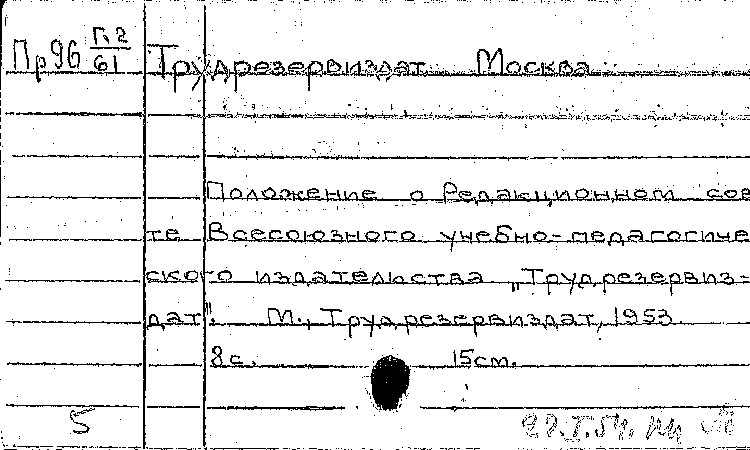 Пр96 П.2/61 Трудрезервиздат Москва
Положение о Редакционном сов
те Всесоюзного учебно-педагогиче
ского издательства „Трудрезервиз-
дат". М., Трудрезервиздат, 1953.
8с. 15см.
5